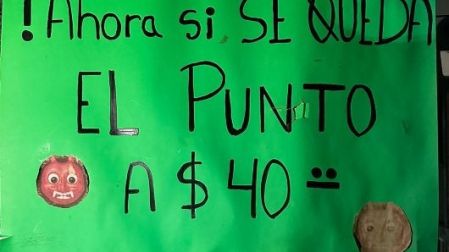 ¡Ahora si SE QUEDA
EL PUNTO
A $40 :=